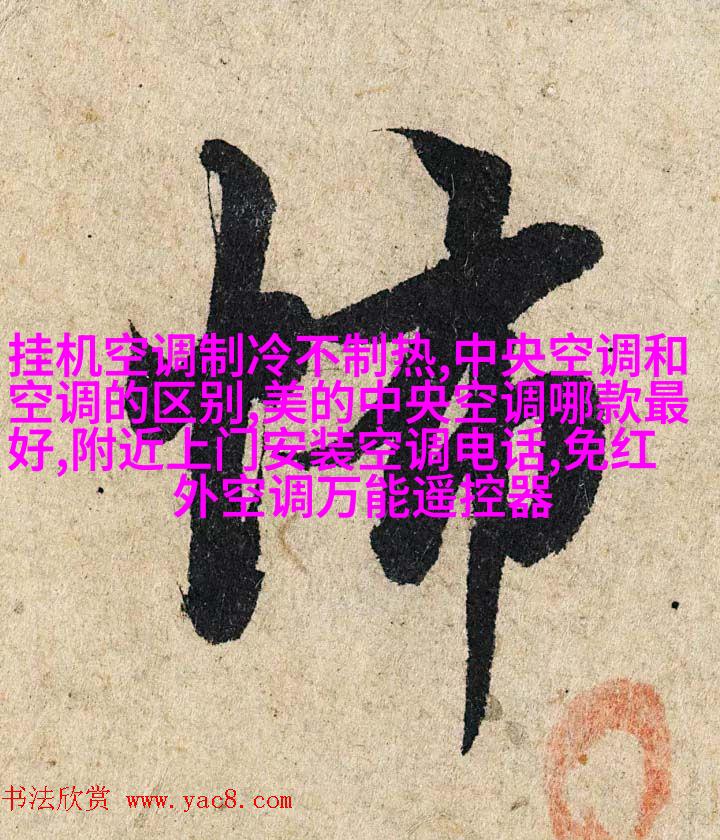 怖
挂机空调制冷不制热,中央空调和
空调的区别,美的中央空调哪款最
好,附近上门安装空调电话,免红
外空调万能遥控器
书法欣赏 www.yac8.com